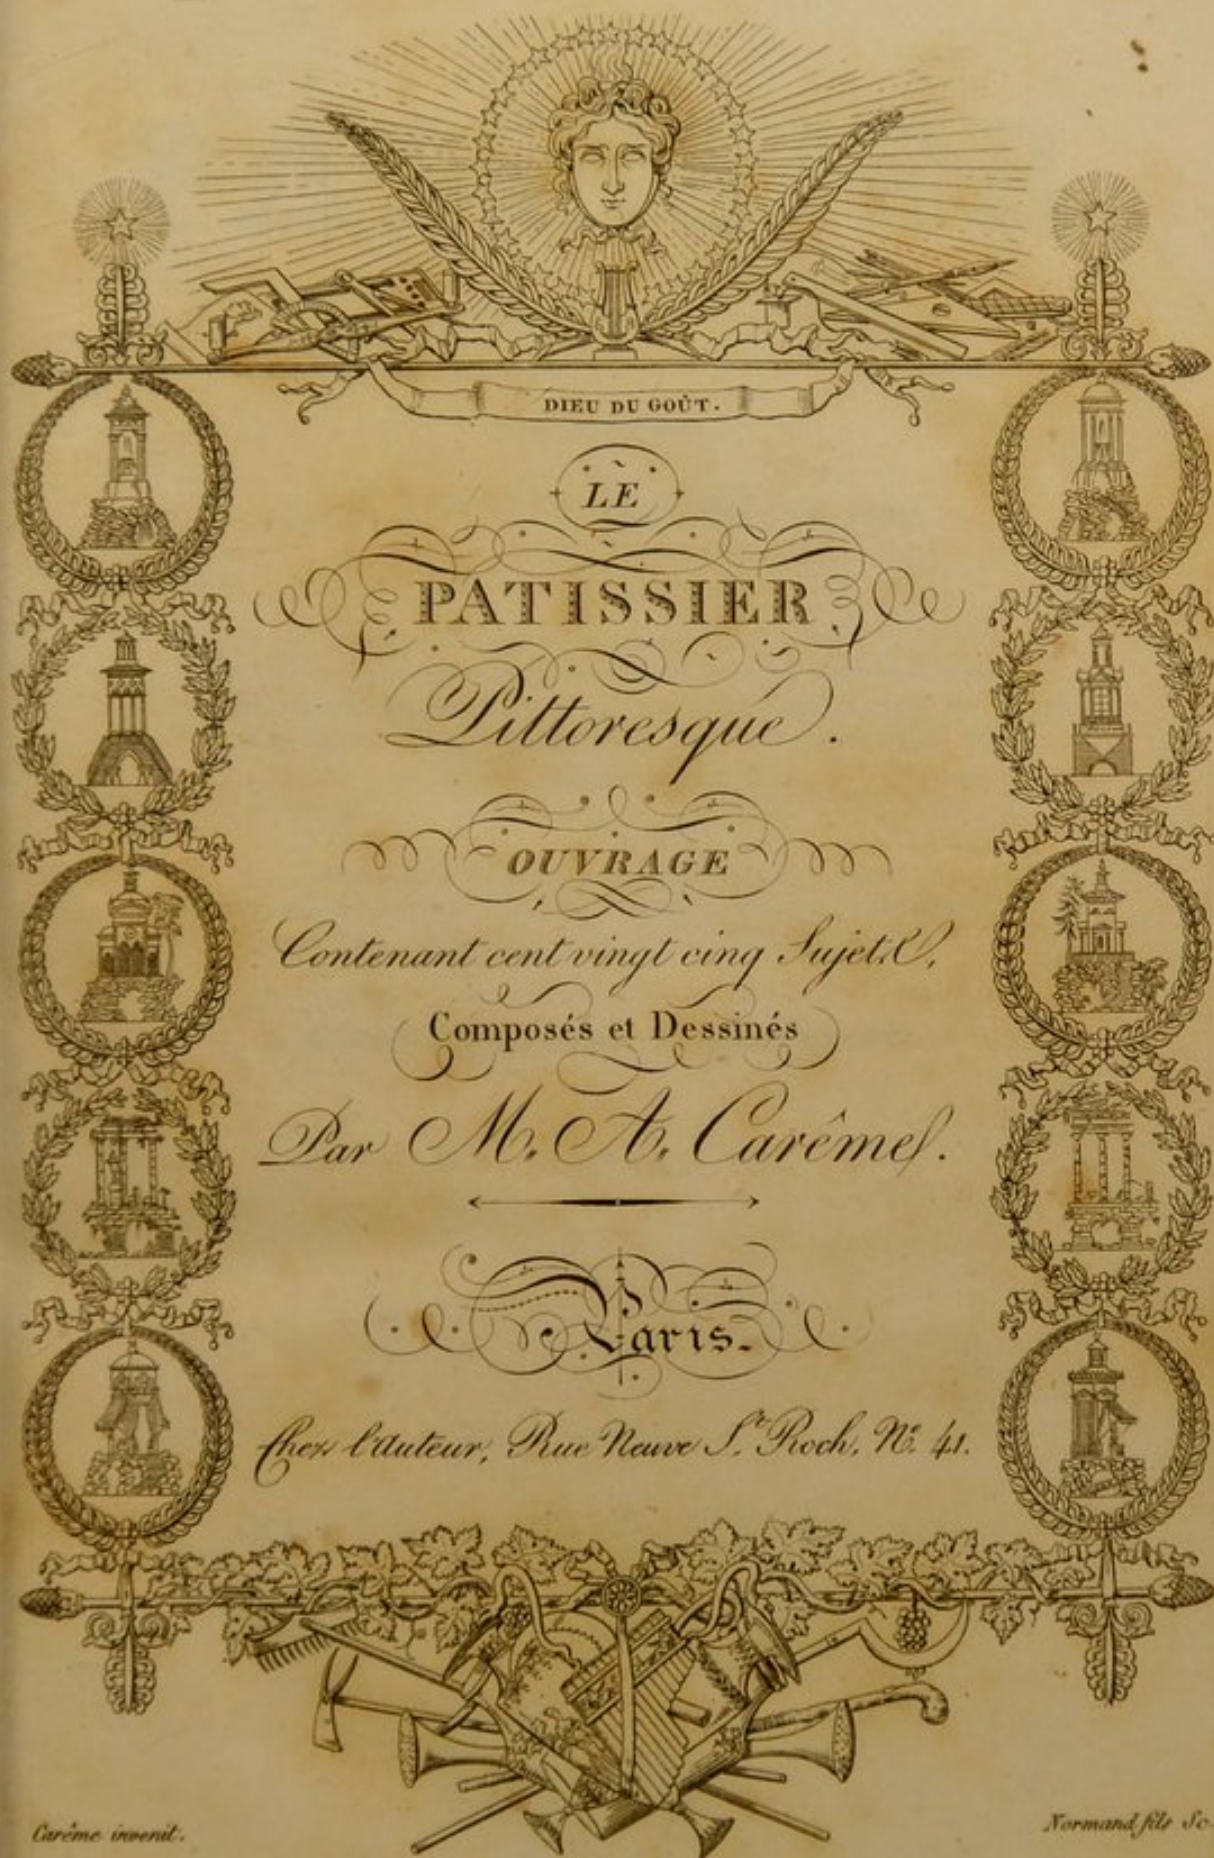 DIEU DU GOÛT.
LE
PATISSIER
Pittoresque.
OUVRAGE
Contenant cent vingt cinq Sujets,
Composés et Dessinés
Par M. A. Carême.
Paris.
Chez l'auteur, Rue Neuve St. Roch, No. 41.
Carême invenit.
Normand fils Sc